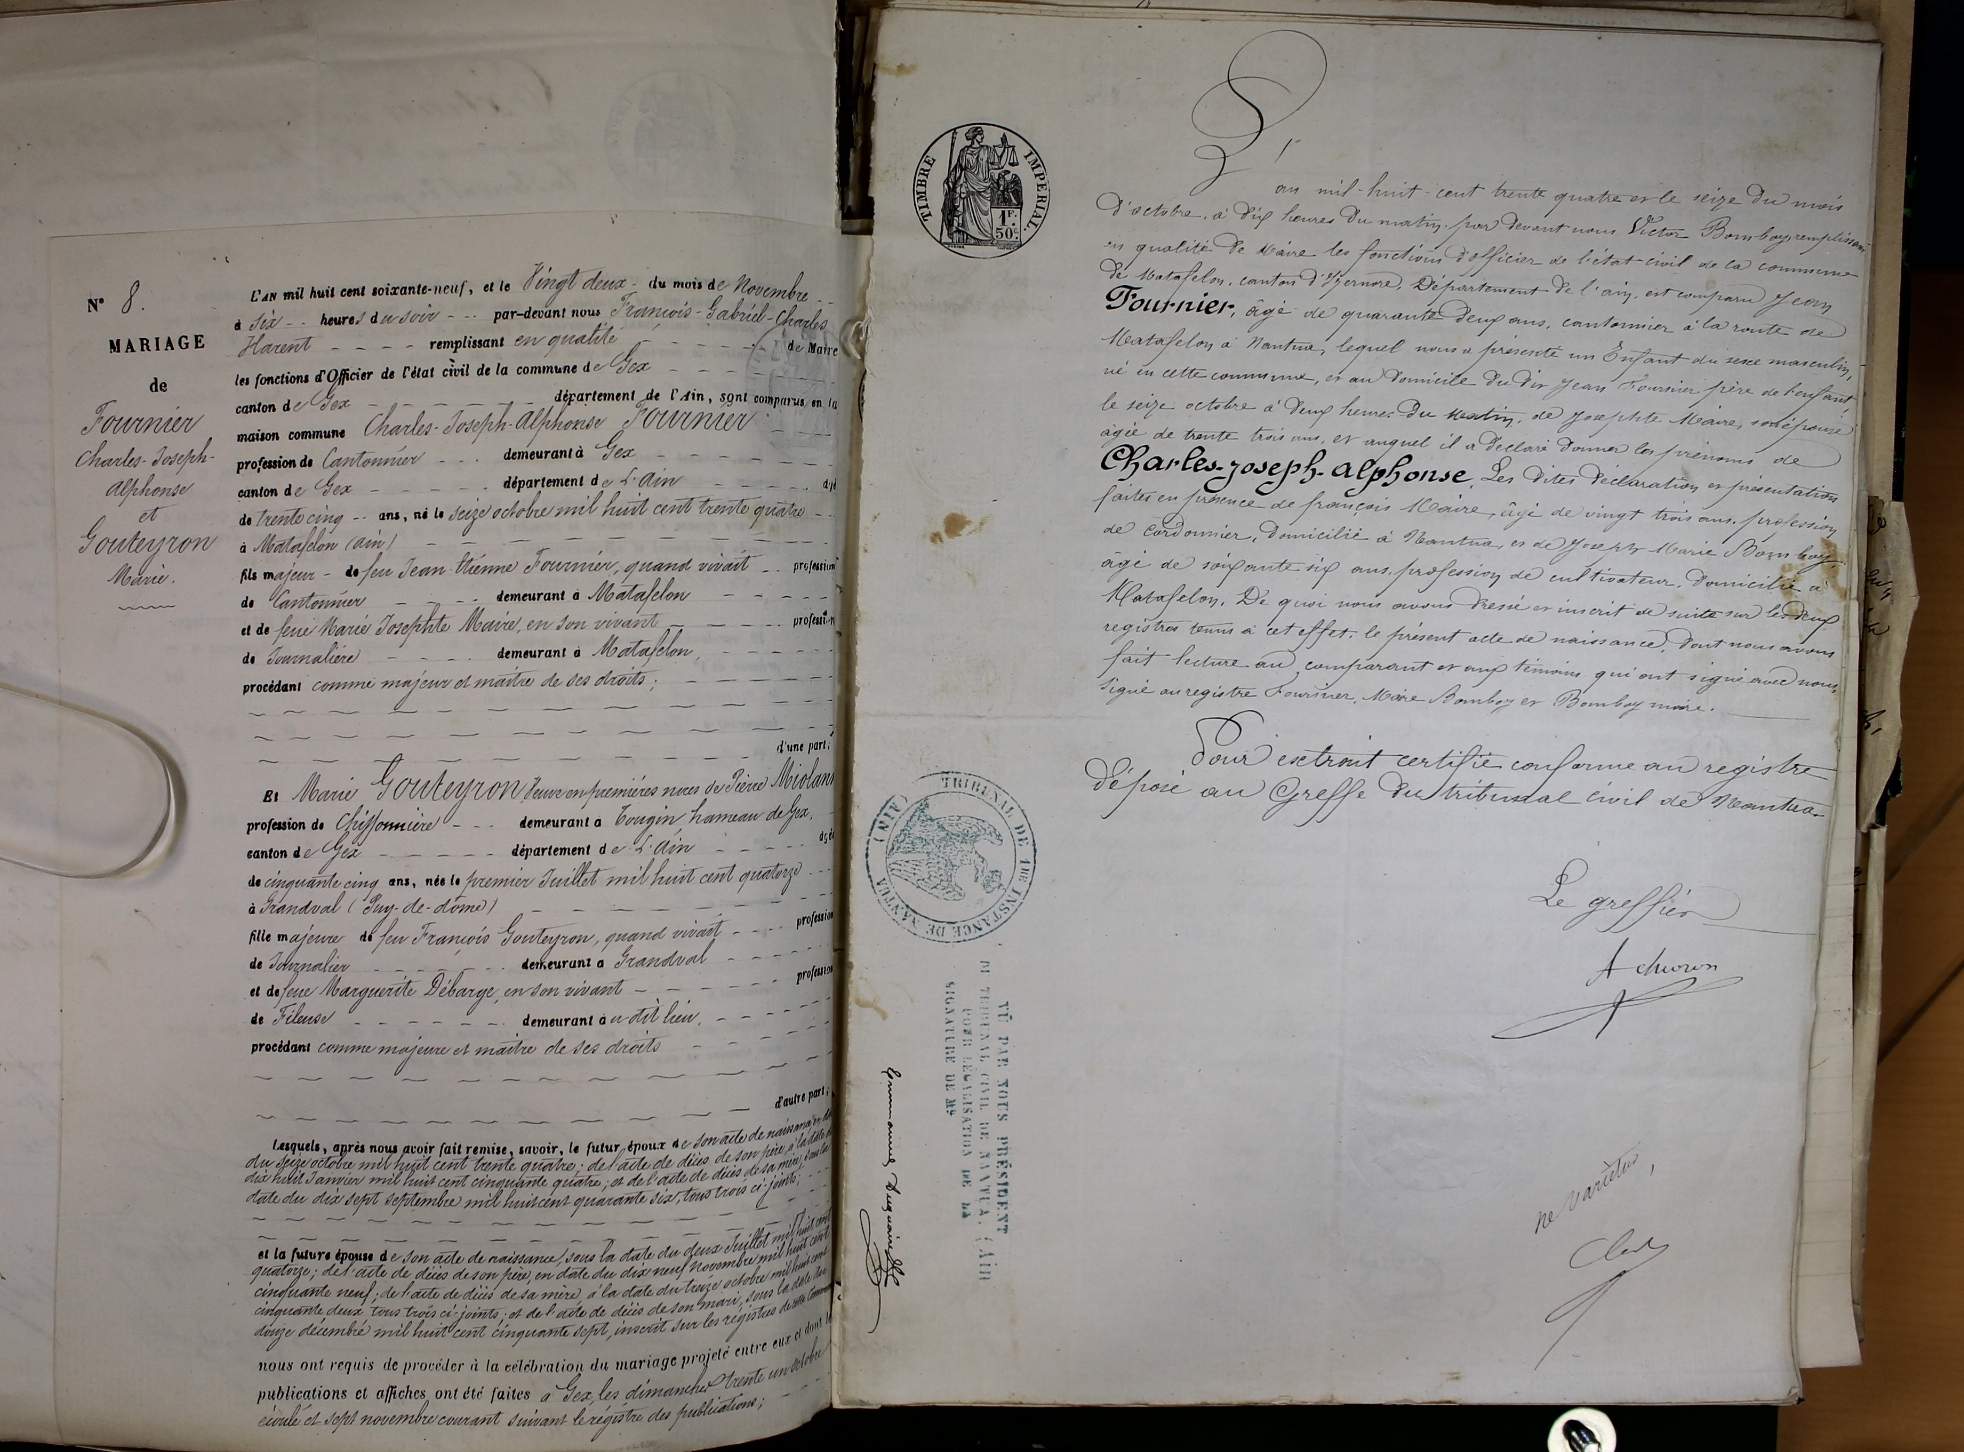 N° 8.
MARIAGE
de
Fournier
Charles-Joseph-
Alphonse
et
Gouteyron
Marie.
L'AN mil huit cent soixante-neuf, et le Vingt deux - du mois de Novembre
à six heures du soir par-devant nous François-Gabriel-Charles
Harent remplissant en qualité de Maire
les fonctions d'Officier de l'état civil de la commune de Gex
canton de Gex département de l'Ain, sont comparus en la
maison commune Charles-Joseph-Alphonse Fournier
profession de Cantonnier demeurant à Gex
canton de Gex département de L'Ain âgé
de trente cinq ans, né le seize octobre mil huit cent trente quatre
à Matafelon (ain)
fils majeur de feu Jean-Etienne Fournier, quand vivait profession
de Cantonnier demeurant à Matafelon
et de feue Marie Josephte Maire, en son vivant profession
de Journalière demeurant à Matafelon,
procédant comme majeur et maître de ses droits;
d'une part;
Et Marie Gouteyron Veuve en premières noces de Pierre Miolan
profession de Chiffonnière demeurant à Tougin hameau de Gex,
canton de Gex département de L'Ain âgée
de cinquante cinq ans, née le premier Juillet mil huit cent quatorze
à Grandval (Puy-de-dôme)
fille majeure de feu François Gouteyron, quand vivait profession
de Journalier demeurant à Grandval
et de feue Marguerite Débarge, en son vivant profession
de Fileuse demeurant au dit lieu,
procédant comme majeure et maître de ses droits
d'autre part;
Lesquels, après nous avoir fait remise, savoir, le futur époux de son acte de naissance en date
du seize octobre mil huit cent trente quatre; de l'acte de décès de son père, à la date du
dix huit Janvier mil huit cent cinquante quatre; et de l'acte de décès de sa mère, sous la
date du dix sept septembre mil huit cent quarante six, tous trois ci-joints;
et la future épouse de son acte de naissance, sous la date du deux Juillet mil huit cent
quatorze; de l'acte de décès de son père, en date du dix neuf novembre mil huit cent
cinquante neuf; de l'acte de décès de sa mère, à la date du treize octobre mil huit cent
cinquante deux tous trois ci-joints; et de l'acte de décès de son mari, sous la date du
douze décembre mil huit cent cinquante sept, inscrit sur les régistres de cette Commune
nous ont requis de procéder à la célébration du mariage projeté entre eux et dont les
publications et affiches ont été faites à Gex, les dimanches trente un octobre
écoulé et sept novembre courant suivant le régistre des publications;
TIMBRE IMPERIAL.
1 F.
50 c.
L'an mil-huit-cent trente quatre et le seize du mois
d'octobre, à dix heures du matin, par devant nous Victor Bomboy remplissant
en qualité de Maire les fonctions d'officier de l'état-civil de la commune
de Matafelon, canton d'Izernore, Département de l'ain, est comparu Jean
Fournier, âgé de quarante deux ans, cantonnier à la route de
Matafelon à Nantua, lequel nous a présenté un Enfant du sexe masculin,
né en cette commune, et au Domicile du dit Jean Fournier père de l'enfant,
le seize octobre à deux heures du Matin, de Josephte Maire, son épouse
âgée de trente trois ans, et auquel il a déclaré donner les prénoms de
Charles-Joseph-Alphonse. Les dites déclaration et présentation
faites en présence de françois Maire, âgé de vingt trois ans, profession
de cordonnier, Domicilié à Nantua, et de Joseph Marie Bomboy
âgé de soixante six ans, profession de cultivateur, Domicilié à
Matafelon. De quoi nous avons dressé et inscrit de suite sur les deux
registres tenus à cet effet, le présent acte de naissance, dont nous avons
fait lecture au comparant et aux témoins qui ont signé avec nous.
Signé au registre Fournier, Maire Bomboy et Bomboy maire.
Pour extrait certifié conforme au registre
déposé au Greffe du tribunal civil de Nantua.
Le greffier
TRIBUNAL DE 1RE INSTANCE DE NANTUA (AIN)
VU PAR NOUS PRÉSIDENT
DU TRIBUNAL CIVIL DE NANTUA, (AIN
POUR LÉGALISATION DE LA
SIGNATURE DE Mr
ne varietur,